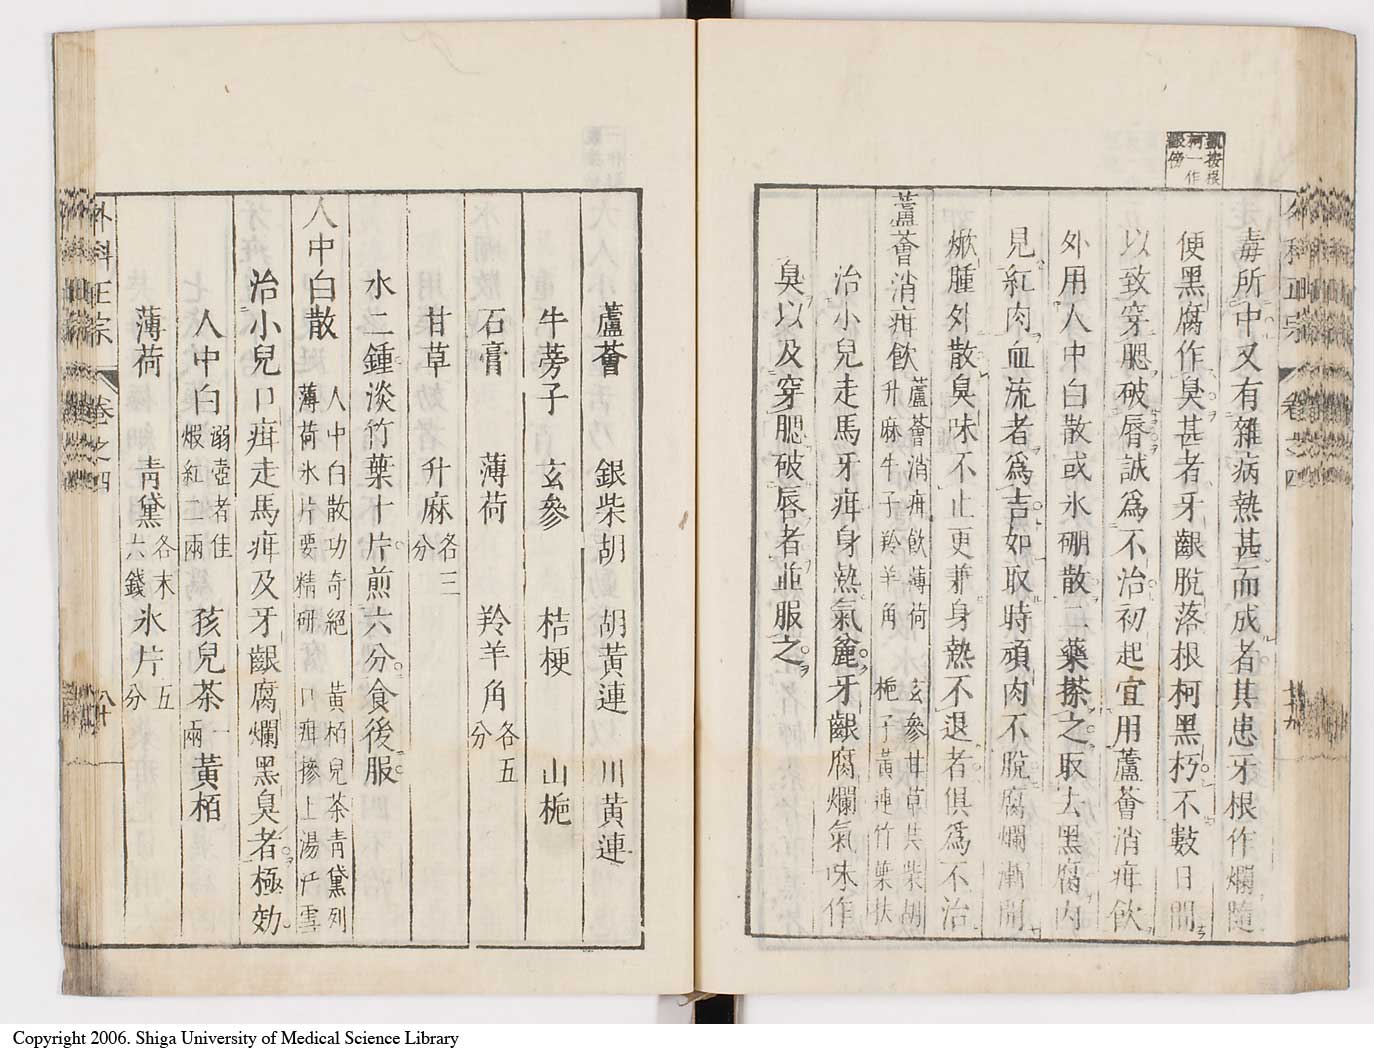 凱按根
柯一作
齦傍
毒所中又有雜病熱甚而成者其患牙根作爛隨
便黑腐作臭甚者牙齦脫落根柯黑朽不數日間
以致穿腮破唇誠爲不治初起宜用蘆薈消疳飲
外用人中白散或氷硼散二藥搽之取去黑腐內
見紅肉血流者爲吉如取時頑肉不脫腐爛漸開
焮腫外散臭味不止更兼身熱不退者俱爲不治
蘆薈消疳飲
蘆薈消疳飲薄荷 玄參甘草共柴胡
升麻牛子羚羊角 梔子黃連竹葉扶
治小兒走馬牙疳身熱氣麄牙齦腐爛氣味作
臭以及穿腮破唇者並服之
外科正宗 卷之四
蘆薈 銀柴胡 胡黃連 川黃連
牛蒡子 玄參 桔梗 山梔
石膏 薄荷 羚羊角各五分
甘草 升麻各三分
水二鍾淡竹葉十片煎六分食後服
人中白散
人中白散功奇絕 黃栢兒茶青黛列
薄荷氷片要精研 口疳摻上湯沃雪
治小兒口疳走馬疳及牙齦腐爛黑臭者極効
人中白溺壺者佳煅紅二兩 孩兒茶一兩 黃栢
薄荷 青黛各末六錢 氷片五分
外科正宗 卷之四 八十
Copyright 2006. Shiga University of Medical Science Library